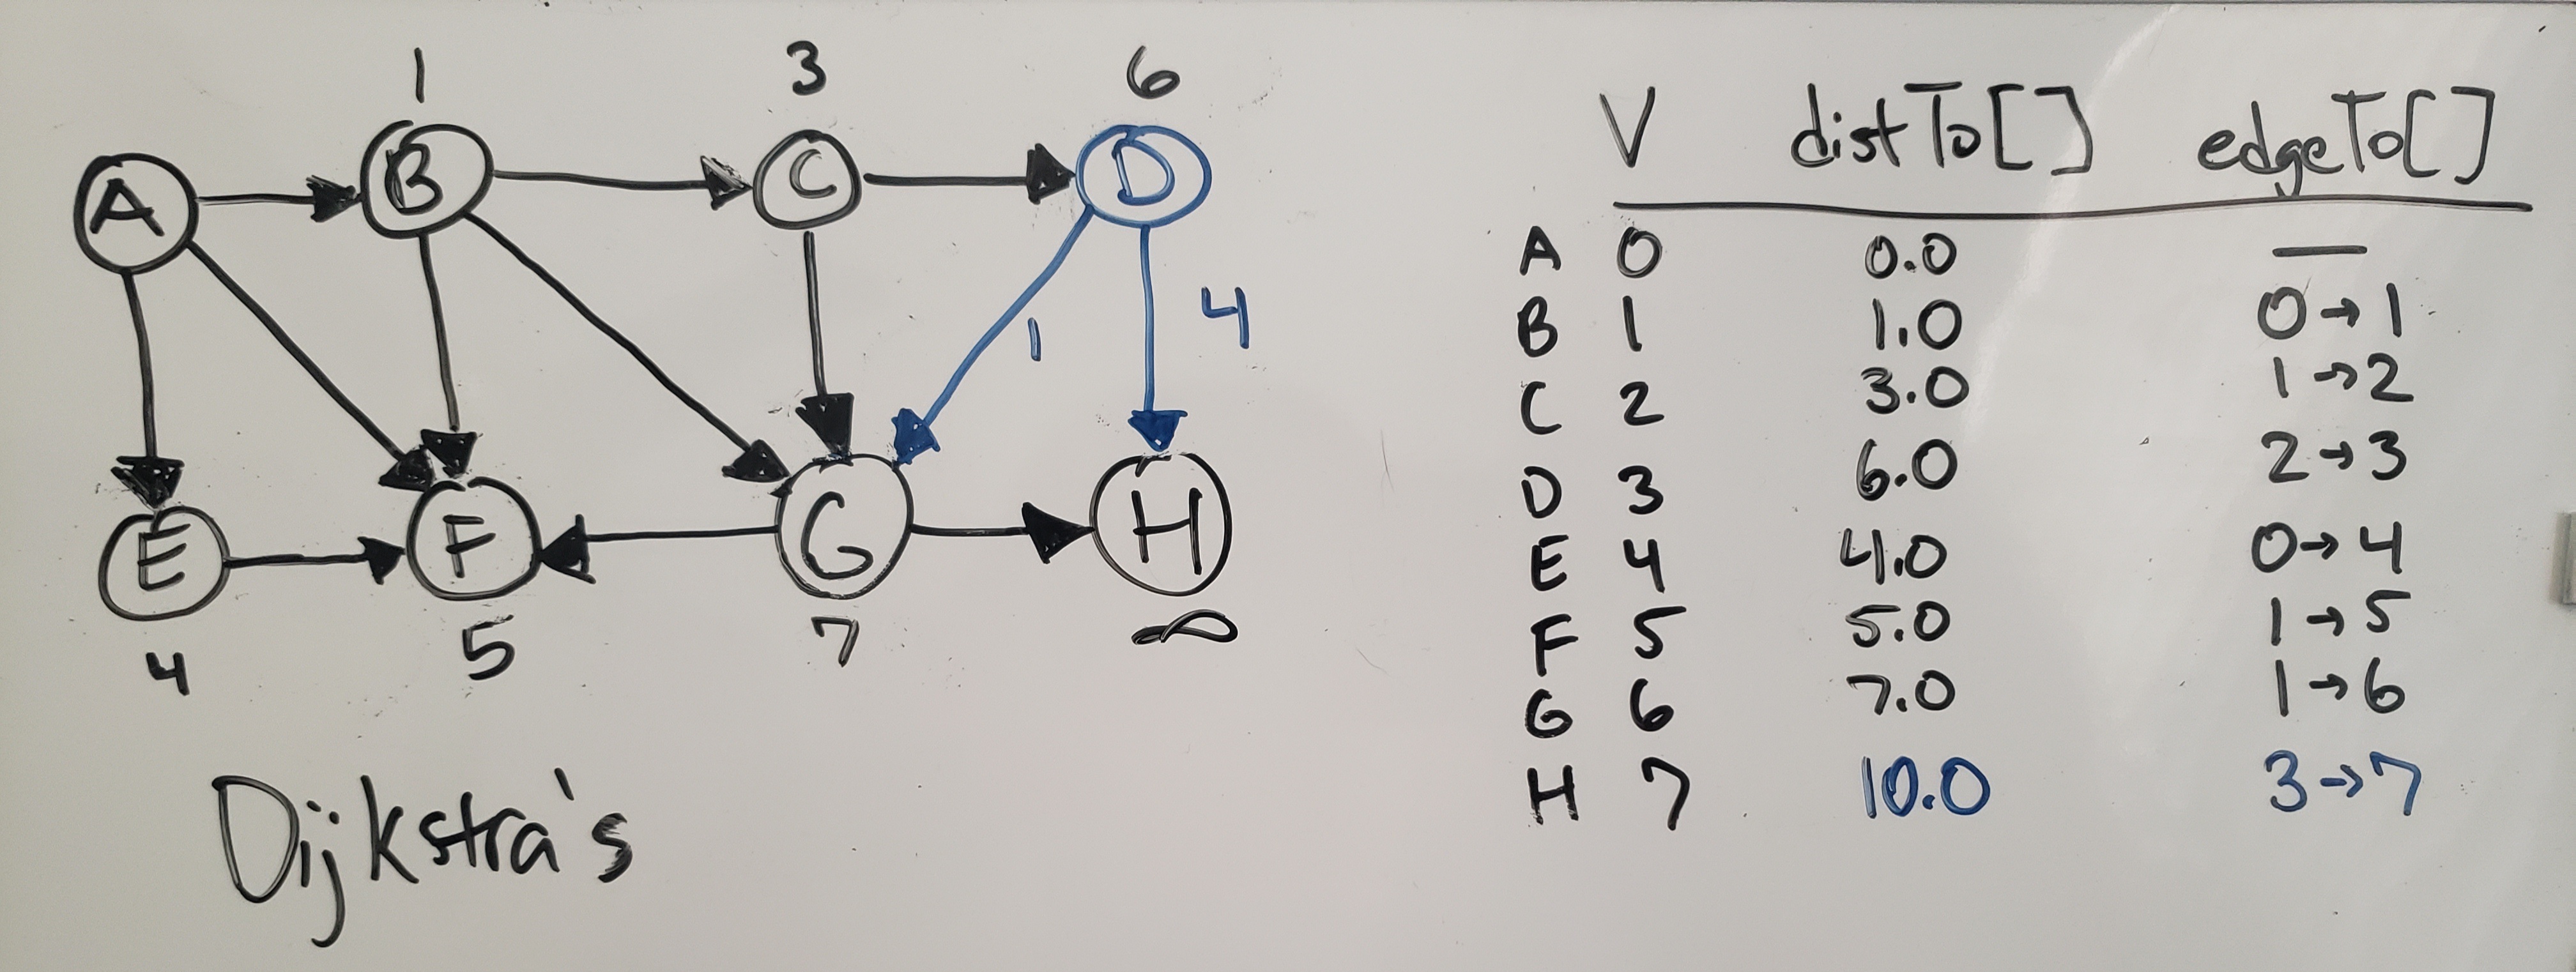 1 3 6
A B C D
1 4
E F G H
4 5 7 ∞
Dijkstra's
V distTo[] edgeTo[]
A 0 0.0 —
B 1 1.0 0→1
C 2 3.0 1→2
D 3 6.0 2→3
E 4 4.0 0→4
F 5 5.0 1→5
G 6 7.0 1→6
H 7 10.0 3→7